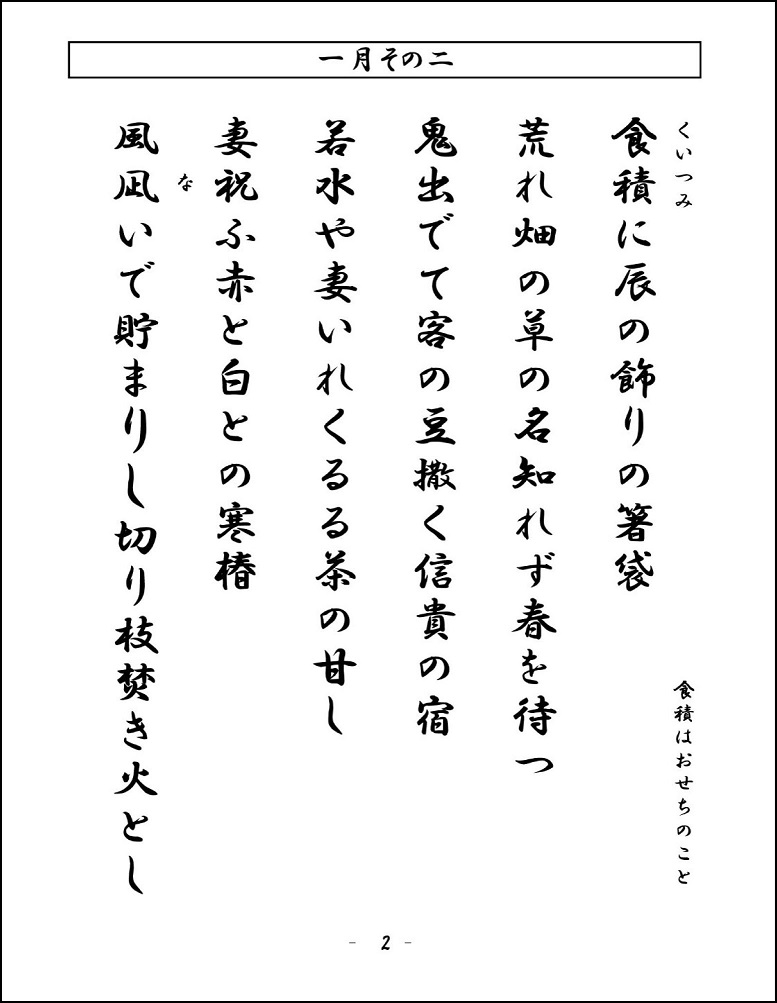 一月その二
くいつみ
食積に辰の飾りの箸袋
食積はおせちのこと
荒れ畑の草の名知れず春を待つ
鬼出でて客の豆撒く信貴の宿
若水や妻いれくるる茶の甘し
妻祝ふ赤と白との寒椿
な
風凪いで貯まりし切り枝焚き火とし
- 2 -